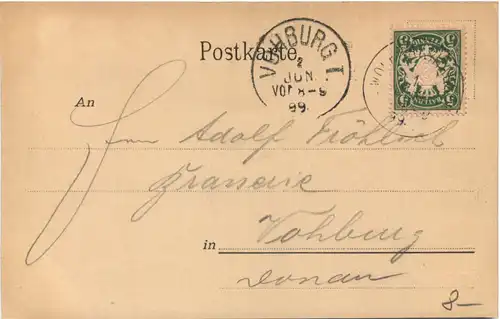 Postkarte
VOHBURG I
2
JUN.
VOR 8-9
99.
BAYERN
5 5
5 5
99.
An
Herrn Adolf Fröhlich
Brauerei
in Vohburg
Donau
8-